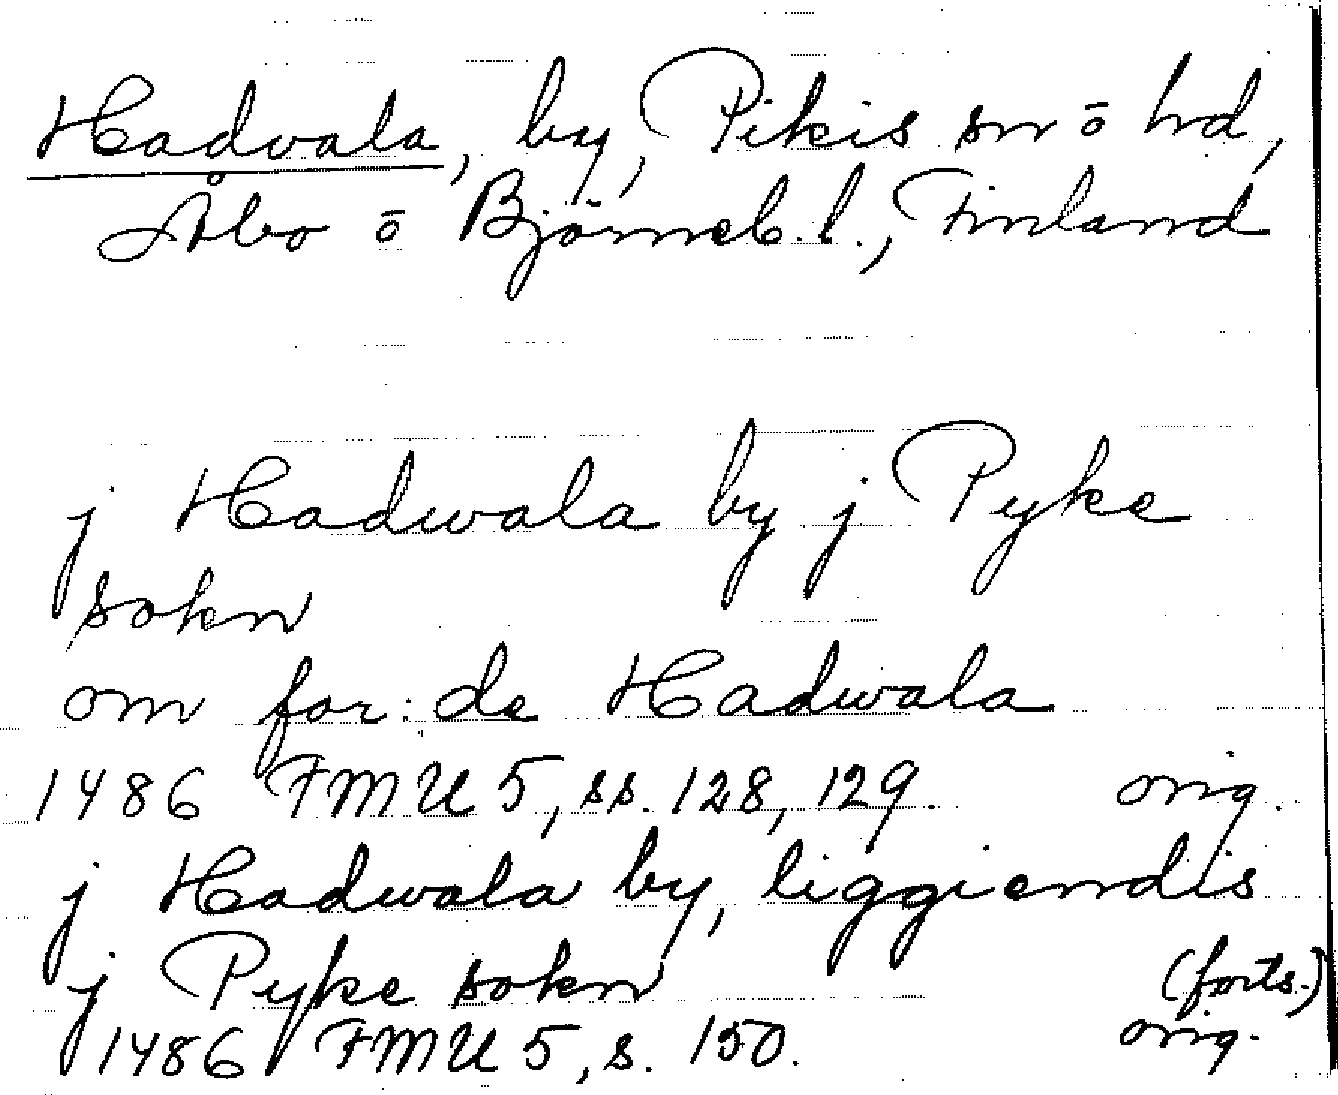 Hadvala, by, Pikis sn ō hd,
Åbo ō Björneb. l., Finland
j Hadwala by j Pyke
sokn
om for:de Hadwala
1486 FMU 5, ss. 128, 129. orig.
j Hadwala by, liggiendis
j Pyke sokn (forts.)
1486 FMU 5, s. 150. orig.